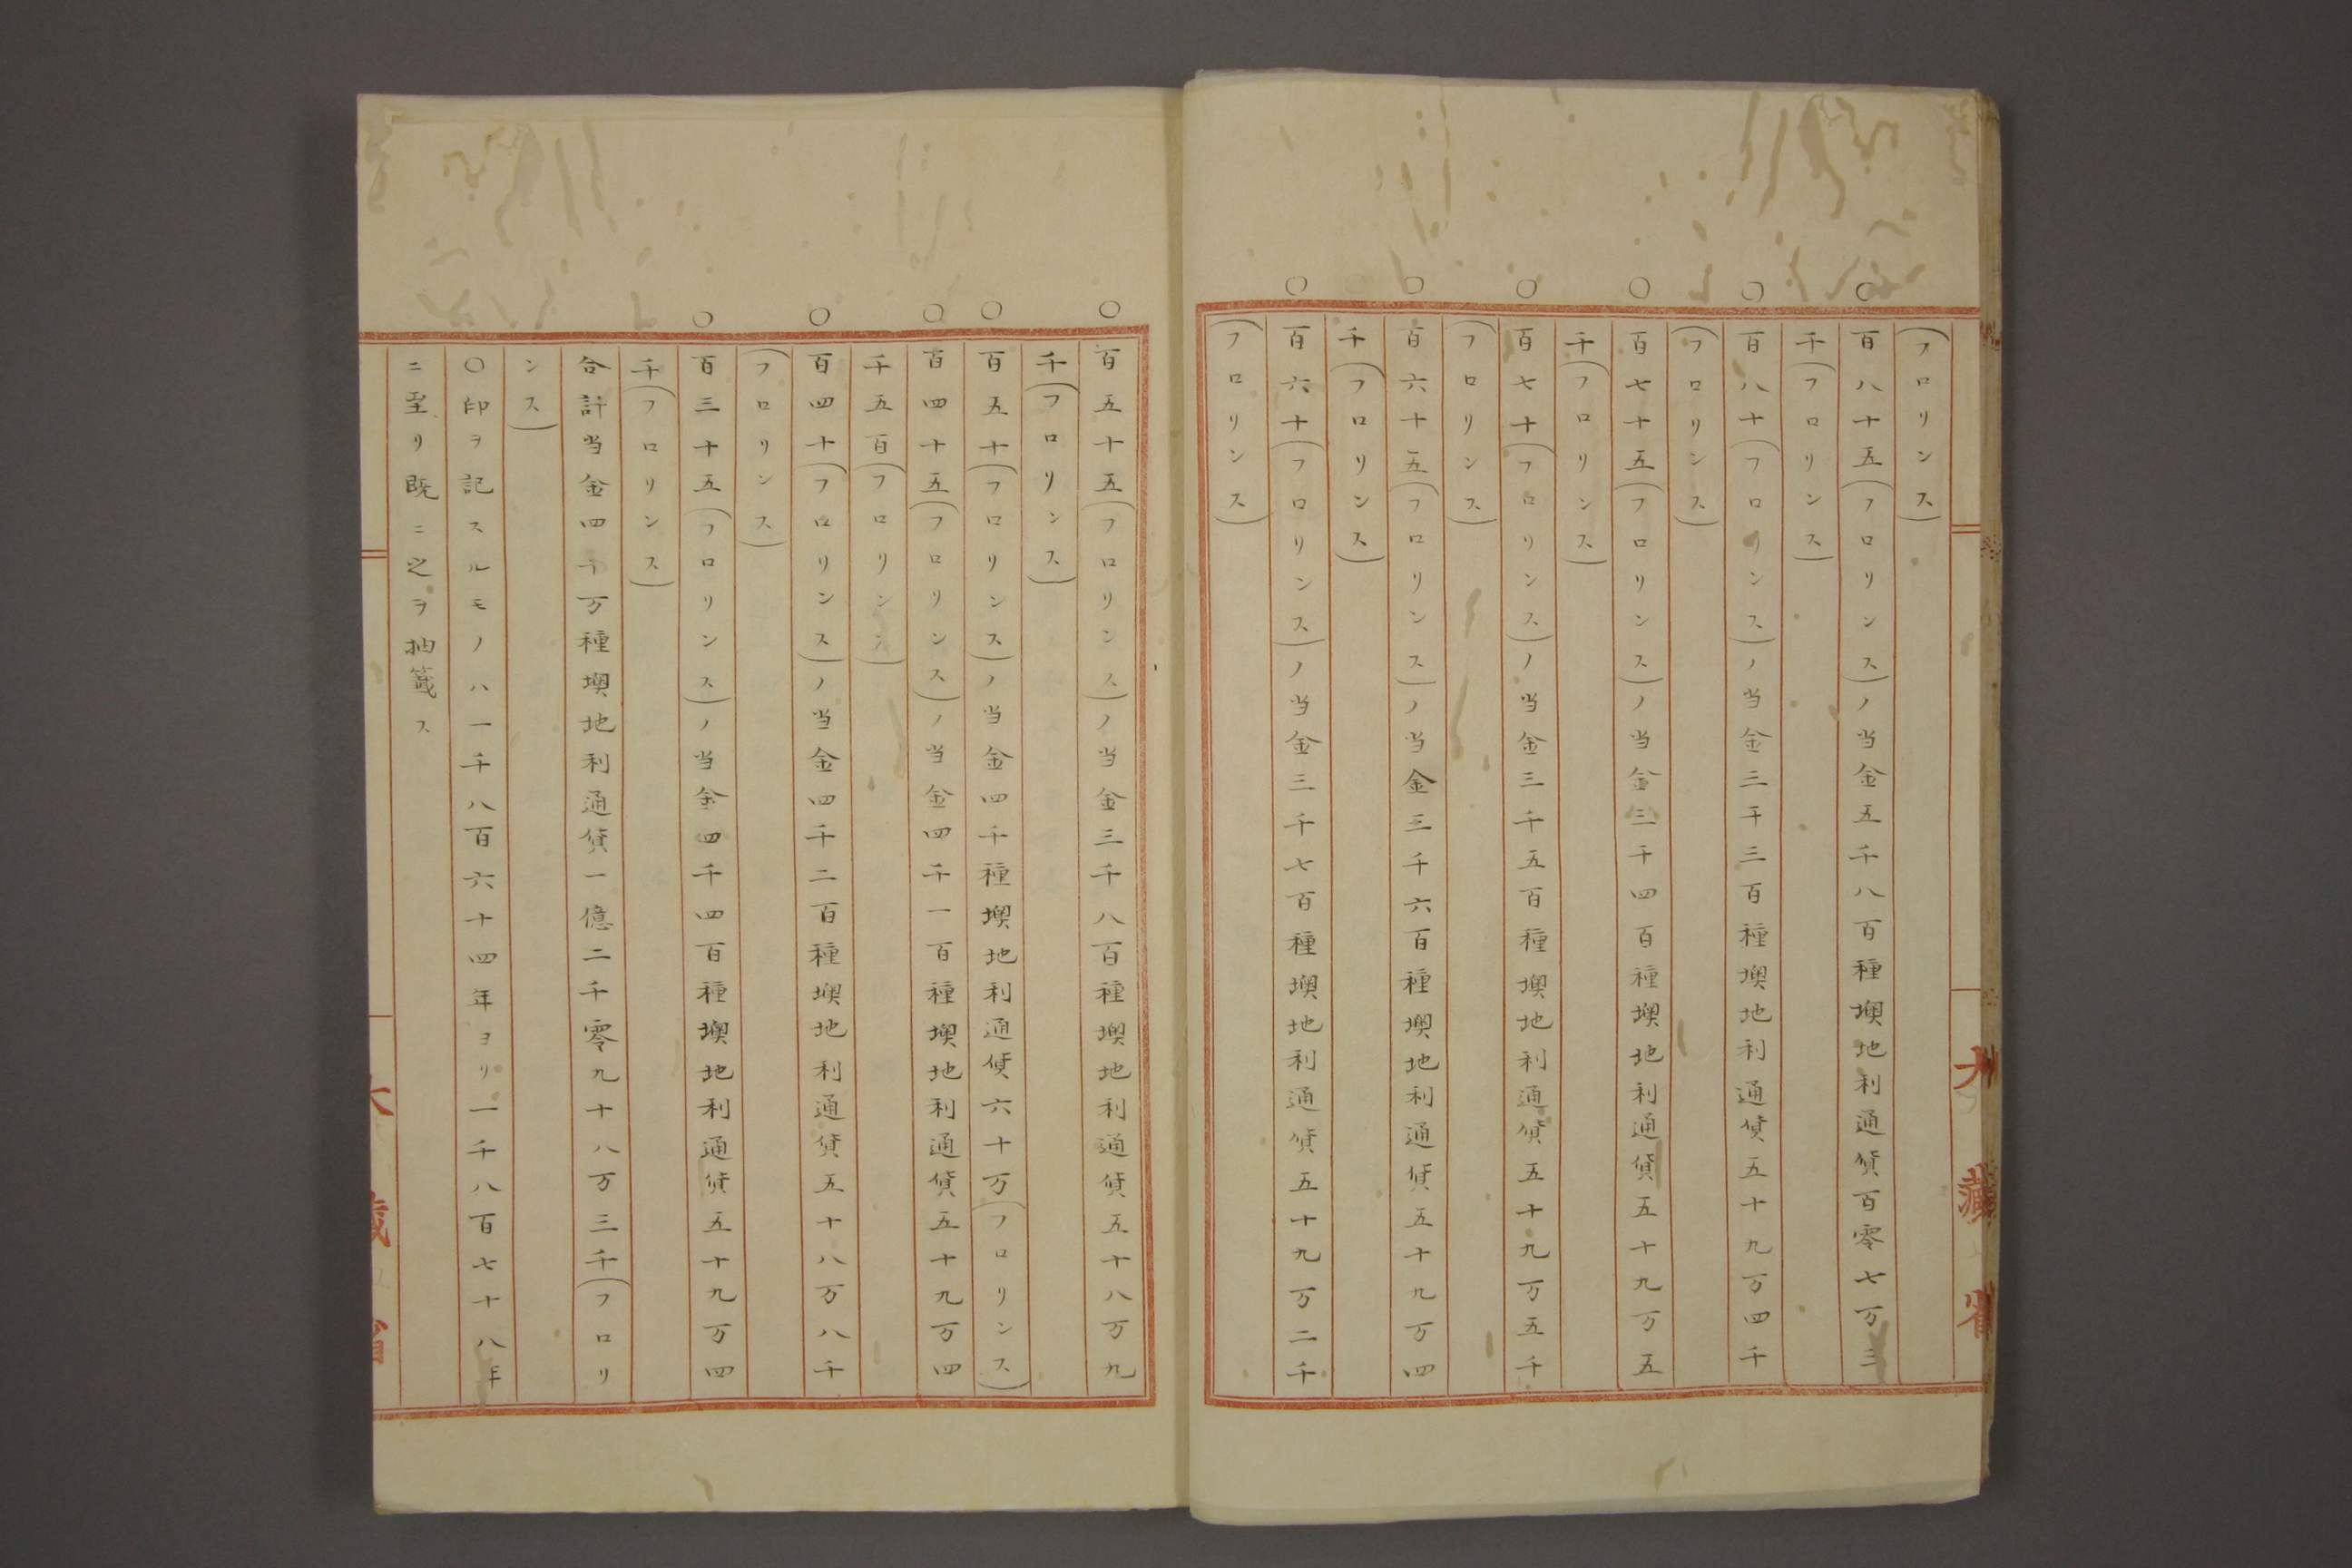 大藏省
(フロリンス)
○百八十五(フロリンス)ノ当金五千八百種墺地利通貨百零七万三
千(フロリンス)
○百八十(フロリンス)ノ当金三千三百種墺地利通貨五十九万四千
(フロリンス)
○百七十五(フロリンス)ノ当金三千四百種墺地利通貨五十九万五
千(フロリンス)
○百七十(フロリンス)ノ当金三千五百種墺地利通貨五十九万五千
(フロリンス)
○百六十五(フロリンス)ノ当金三千六百種墺地利通貨五十九万四
千(フロリンス)
○百六十(フロリンス)ノ当金三千七百種墺地利通貨五十九万二千
(フロリンス)
○百五十五(フロリンス)ノ当金三千八百種墺地利通貨五十八万九
千(フロリンス)
○百五十(フロリンス)ノ当金四千種墺地利通貨六十万(フロリンス)
○百四十五(フロリンス)ノ当金四千一百種墺地利通貨五十九万四
千五百(フロリンス)
○百四十(フロリンス)ノ当金四千二百種墺地利通貨五十八万八千
(フロリンス)
○百三十五(フロリンス)ノ当金四千四百種墺地利通貨五十九万四
千(フロリンス)
合計当金四十万種墺地利通貨一億二千零九十八万三千(フロリ
ンス)
○印ヲ記スルモノハ一千八百六十四年ヨリ一千八百七十八年
ニ至リ既ニ之ヲ抽籤ス
大藏省